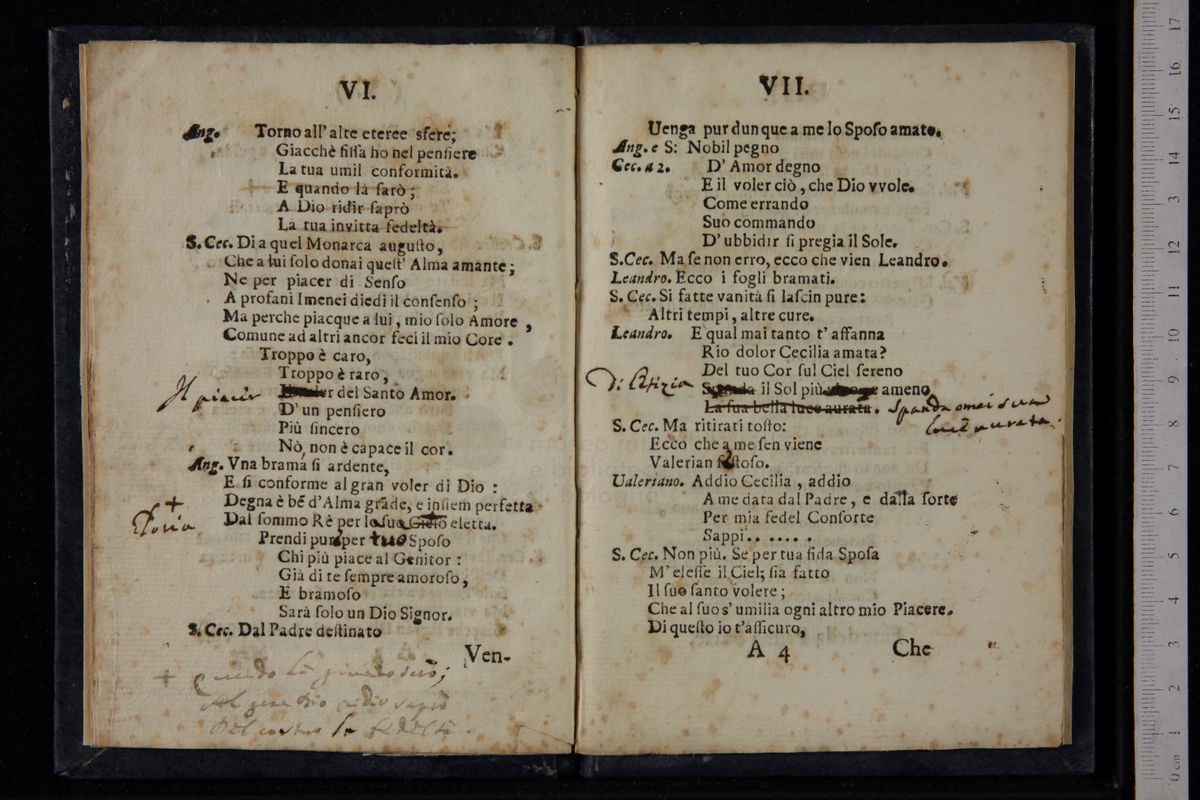 VI.
Ang. Torno all' alte eteree sfere;
Giacchè fiſſa ho nel penſiere
La tua umil conformità.
E quando là ſarò;
A Dio ridir ſaprò
La tua invitta fedeltà.
S. Cec. Di a quel Monarca auguſto,
Che a lui ſolo donai queſt' Alma amante;
Ne per piacer di Senſo
A profani Imenei diedi il conſenſo;
Ma perche piacque a lui, mio ſolo Amore,
Comune ad altri ancor feci il mio Core.
Troppo è caro,
Troppo è raro,
Il piacir
r del Santo Amor.
D' un penſiero
Più ſincero
Nò, non è capace il cor.
Ang. Vna brama ſi ardente,
E ſi conforme al gran voler di Dio:
Degna è bē d'Alma grāde, e inſiem perfetta
Dal ſommo Rè per lo ſuo eletta.
Prendi pur per tuo Spoſo
Chi più piace al Genitor:
Già di te ſempre amoroſo,
E bramoſo
Sarà ſolo un Dio Signor.
S. Cec. Dal Padre deſtinato
Ven-
VII.
Uenga pur dunque a me lo Spoſo amato.
Ang. e S: Nobil pegno
Cec. a 2. D' Amor degno
E il voler ciò, che Dio vvole.
Come errando
Suo commando
D' ubbidir ſi pregia il Sole.
S. Cec. Ma ſe non erro, ecco che vien Leandro.
Leandro. Ecco i fogli bramati.
S. Cec. Sì fatte vanità ſi laſcin pure:
Altri tempi, altre cure.
Leandro. E qual mai tanto t' affanna
Rio dolor Cecilia amata?
Del tuo Cor ſul Ciel ſereno
Di Letizia
il Sol più ameno
La ſua bella luce aurata. Spanda omai sua
luce aurata.
S. Cec. Ma ritirati toſto:
Ecco che a me ſen viene
Valerian toſo.
Ualeriano. Addio Cecilia, addio
A me data dal Padre, e dalla ſorte
Per mia fedel Conſorte
Sappi.......
S. Cec. Non più. Se per tua fida Spoſa
M' eleſſe il Ciel; ſia fatto
Il ſuo ſanto volere;
Che al ſuo s' umilia ogni altro mio Piacere.
Di queſto io t'aſſicuro,
A 4 Che